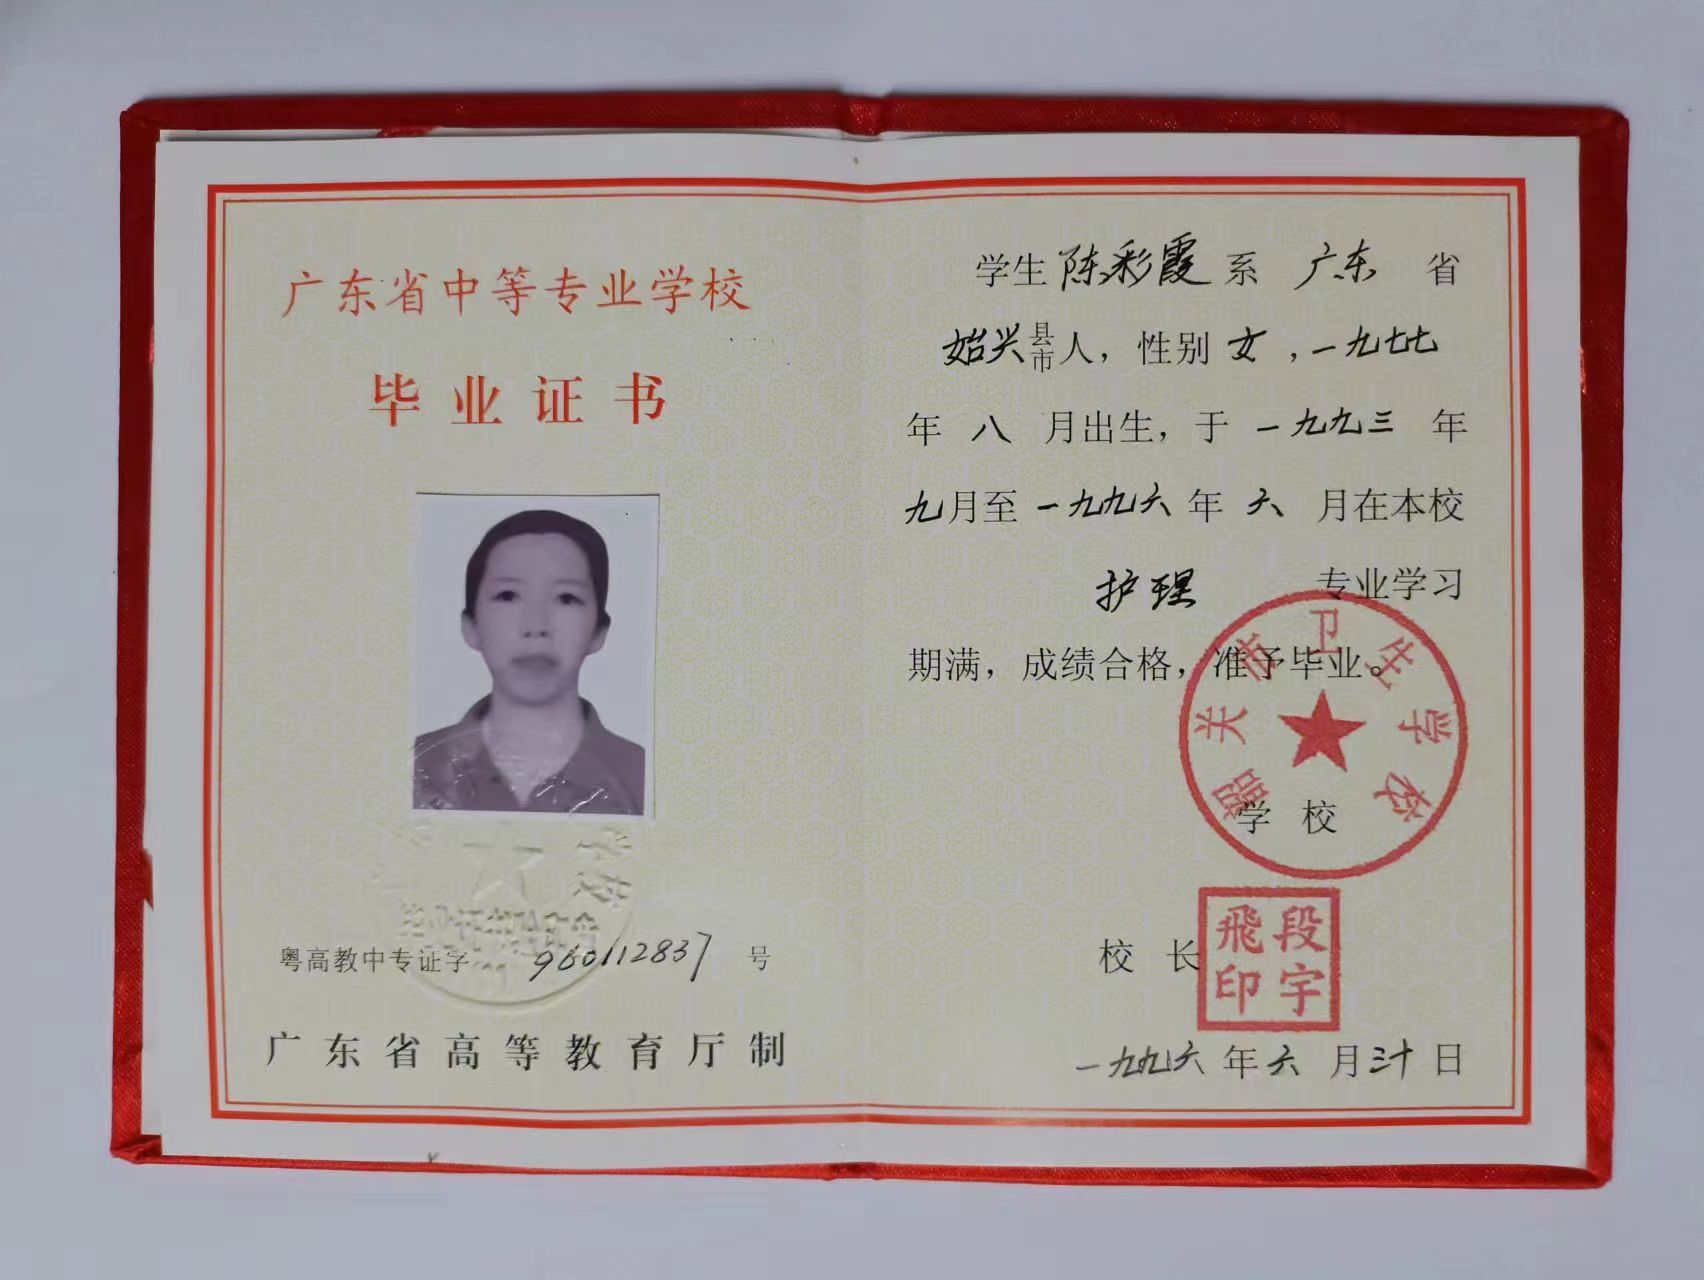 广东省中等专业学校
毕业证书
粤高教中专证字 960112837 号
广东省高等教育厅制
学生 陈彩霞 系 广东 省
始兴县市人，性别 女，一九七七
年 八 月出生，于 一九九三 年
九月至 一九九六 年 六 月在本校
护理 专业学习
期满，成绩合格，准予毕业。
韶关市卫生学校
学 校
校 长
段宇飛印
一九九六 年 六 月 三十 日